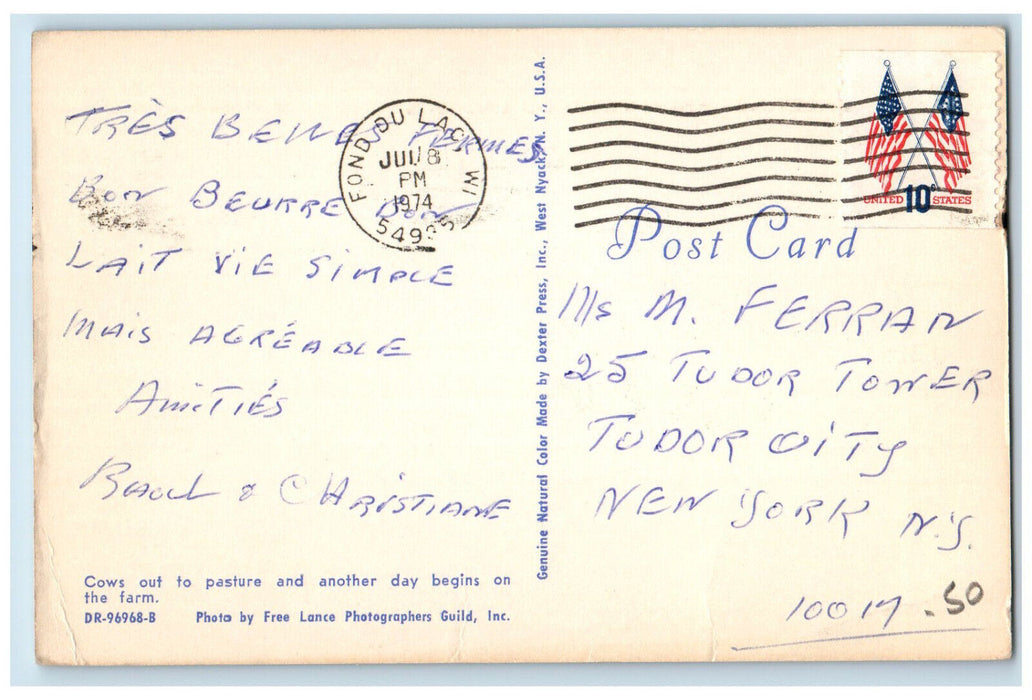 TRÈS BELLES FERMES
BON BEURRE BON
LAIT VIE SIMPLE
MAIS AGRÉABLE
AMITIÉS
RAOUL & CHRISTIANE
Cows out to pasture and another day begins on
the farm.
DR-96968-B Photo by Free Lance Photographers Guild, Inc.
FOND DU LAC WI
JUL 8
PM
1974
54935
Genuine Natural Color Made by Dexter Press, Inc., West Nyack, N. Y., U.S.A.
UNITED 10c STATES
Post Card
Ms M. FERRAN
25 TUDOR TOWER
TUDOR CITY
NEW YORK N.Y.
10017
.50